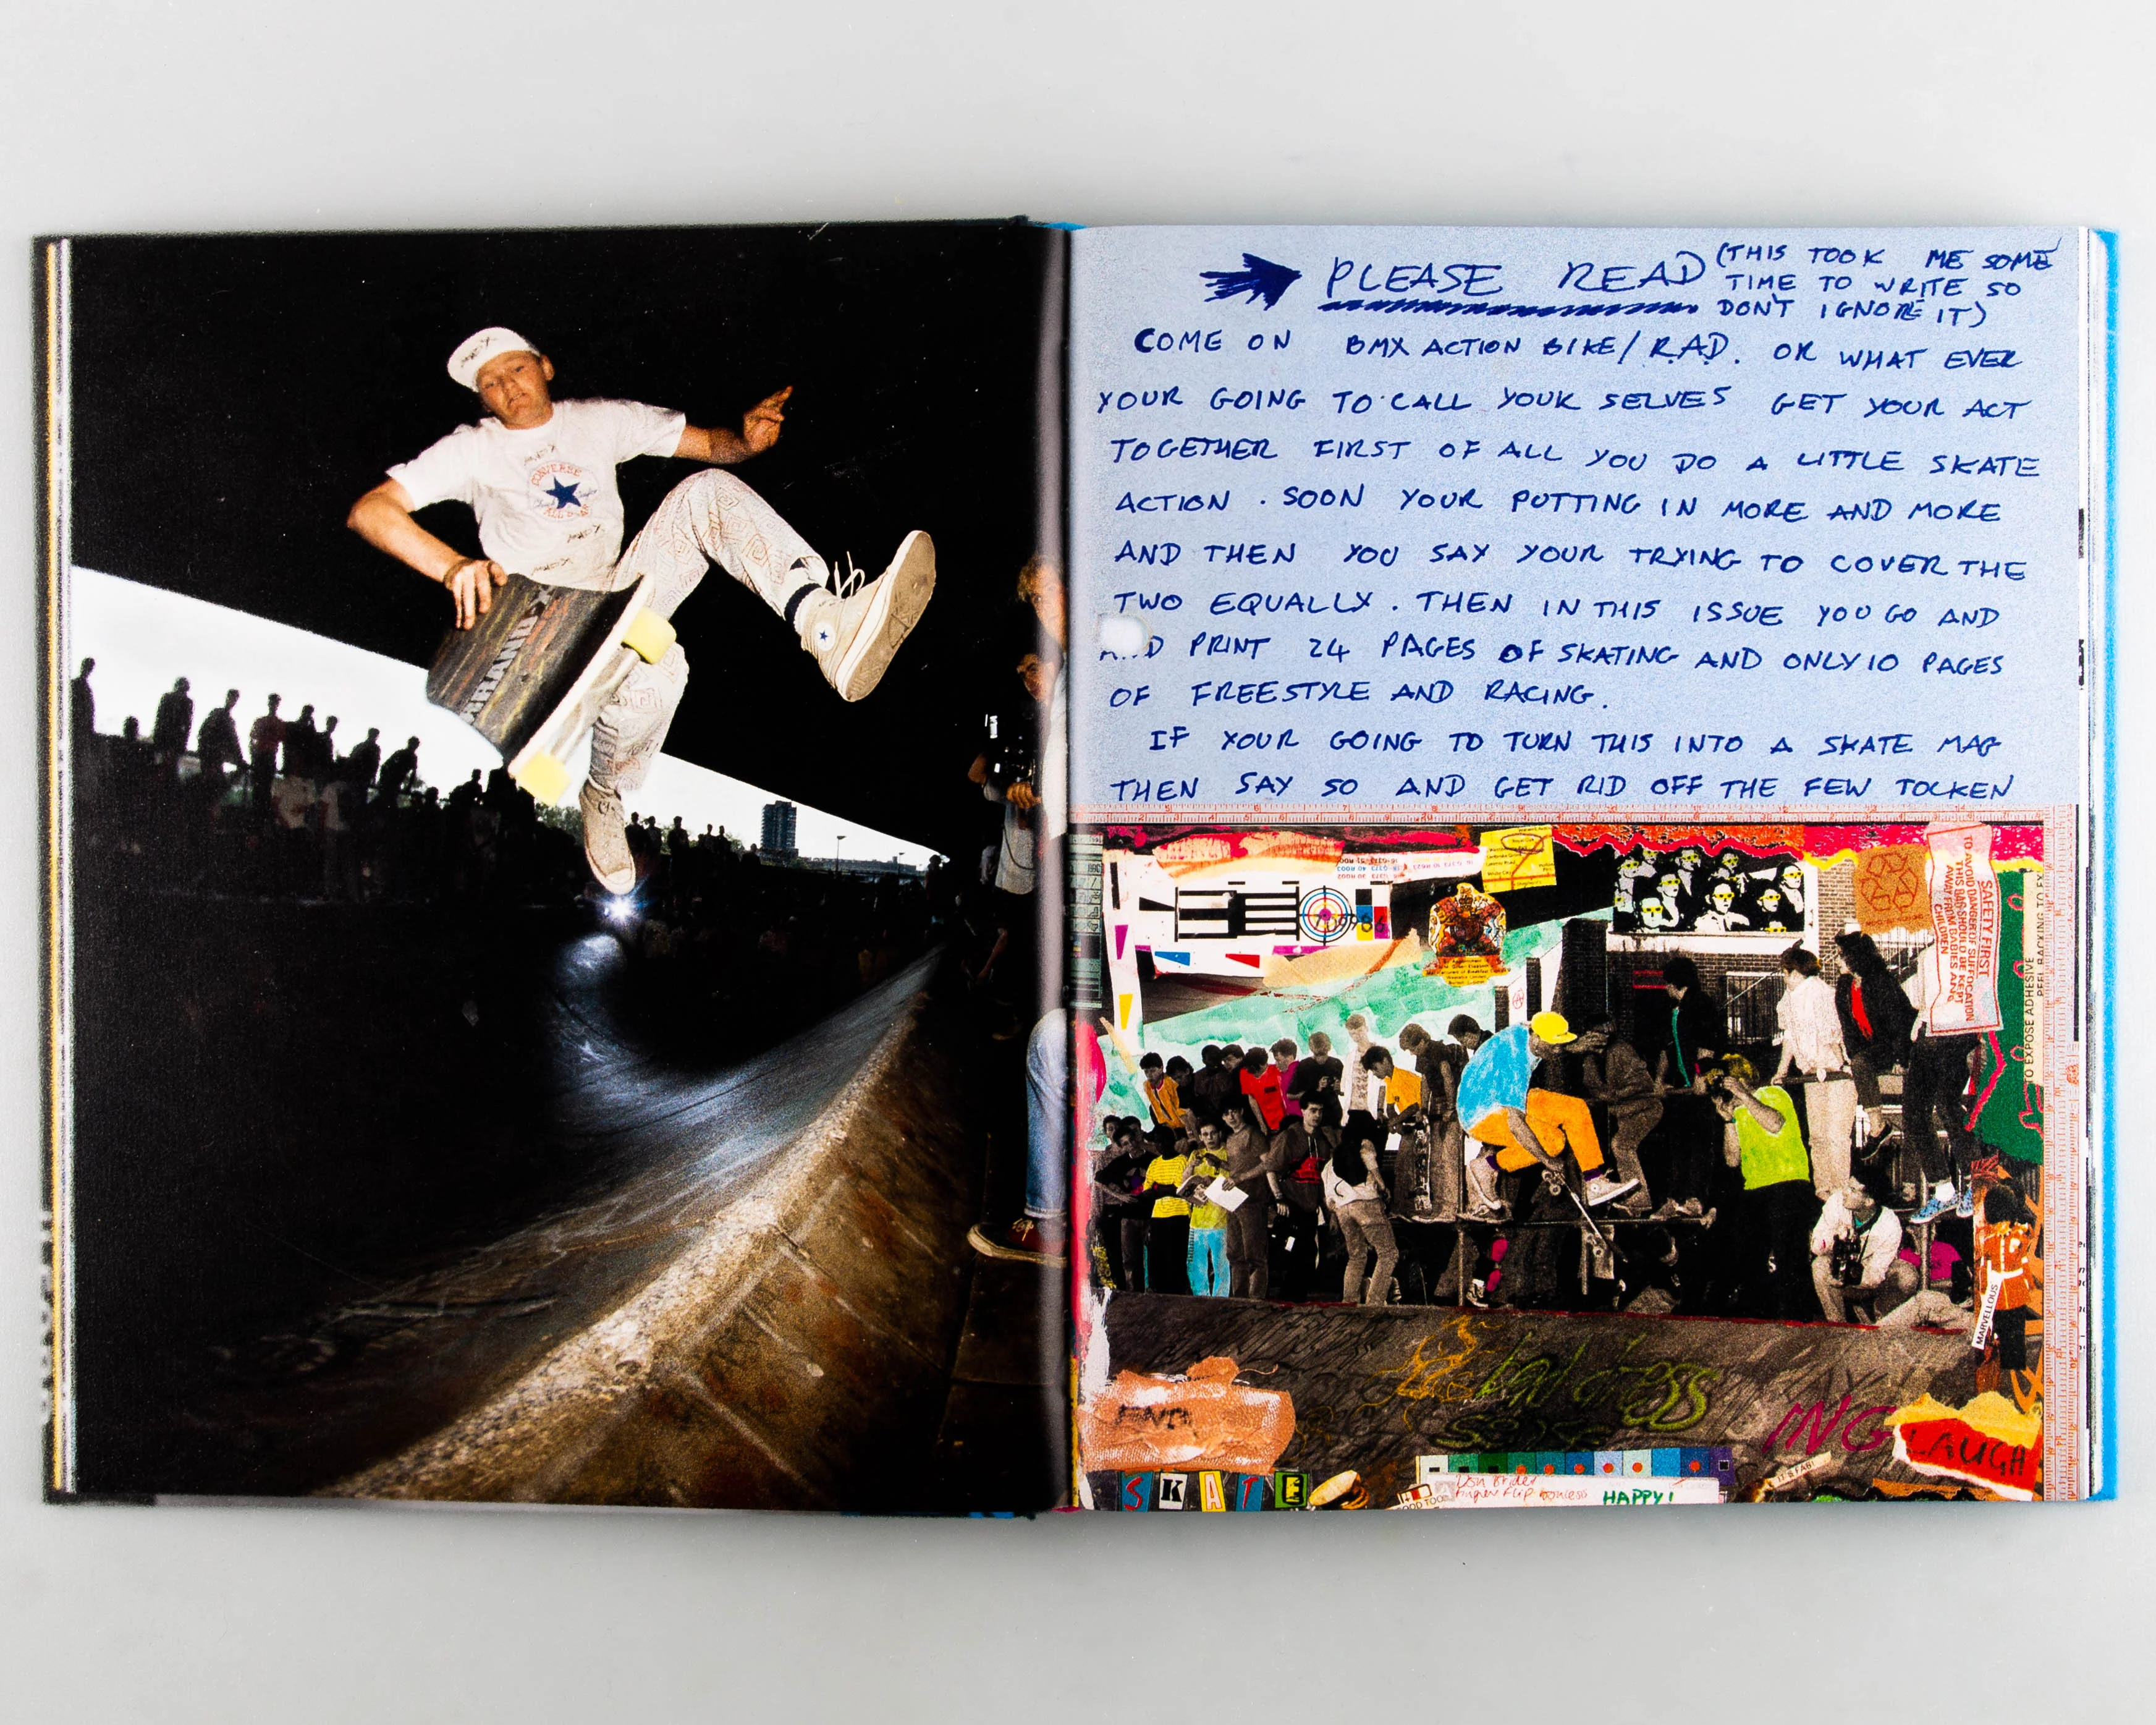 CONVERSE
PLEASE READ (THIS TOOK ME SOME
TIME TO WRITE SO
DON'T IGNORE IT)
COME ON BMX ACTION BIKE/R.A.D. OR WHAT EVER
YOUR GOING TO CALL YOUR SELVES GET YOUR ACT
TOGETHER FIRST OF ALL YOU DO A LITTLE SKATE
ACTION. SOON YOUR PUTTING IN MORE AND MORE
AND THEN YOU SAY YOUR TRYING TO COVER THE
TWO EQUALLY. THEN IN THIS ISSUE YOU GO AND
AND PRINT 24 PAGES OF SKATING AND ONLY 10 PAGES
OF FREESTYLE AND RACING.
IF YOUR GOING TO TURN THIS INTO A SKATE MAG
THEN SAY SO AND GET RID OFF THE FEW TOCKEN
SAFETY FIRST
TO AVOID DANGER OF SUFFOCATION
THIS BAG SHOULD BE KEPT
AWAY FROM BABIES AND
CHILDREN
TO EXPOSE ADHESIVE
MARVELLOUS
bad dress
sense
ING
LAUGH
IT'S FAB!
SKATE
HAPPY!